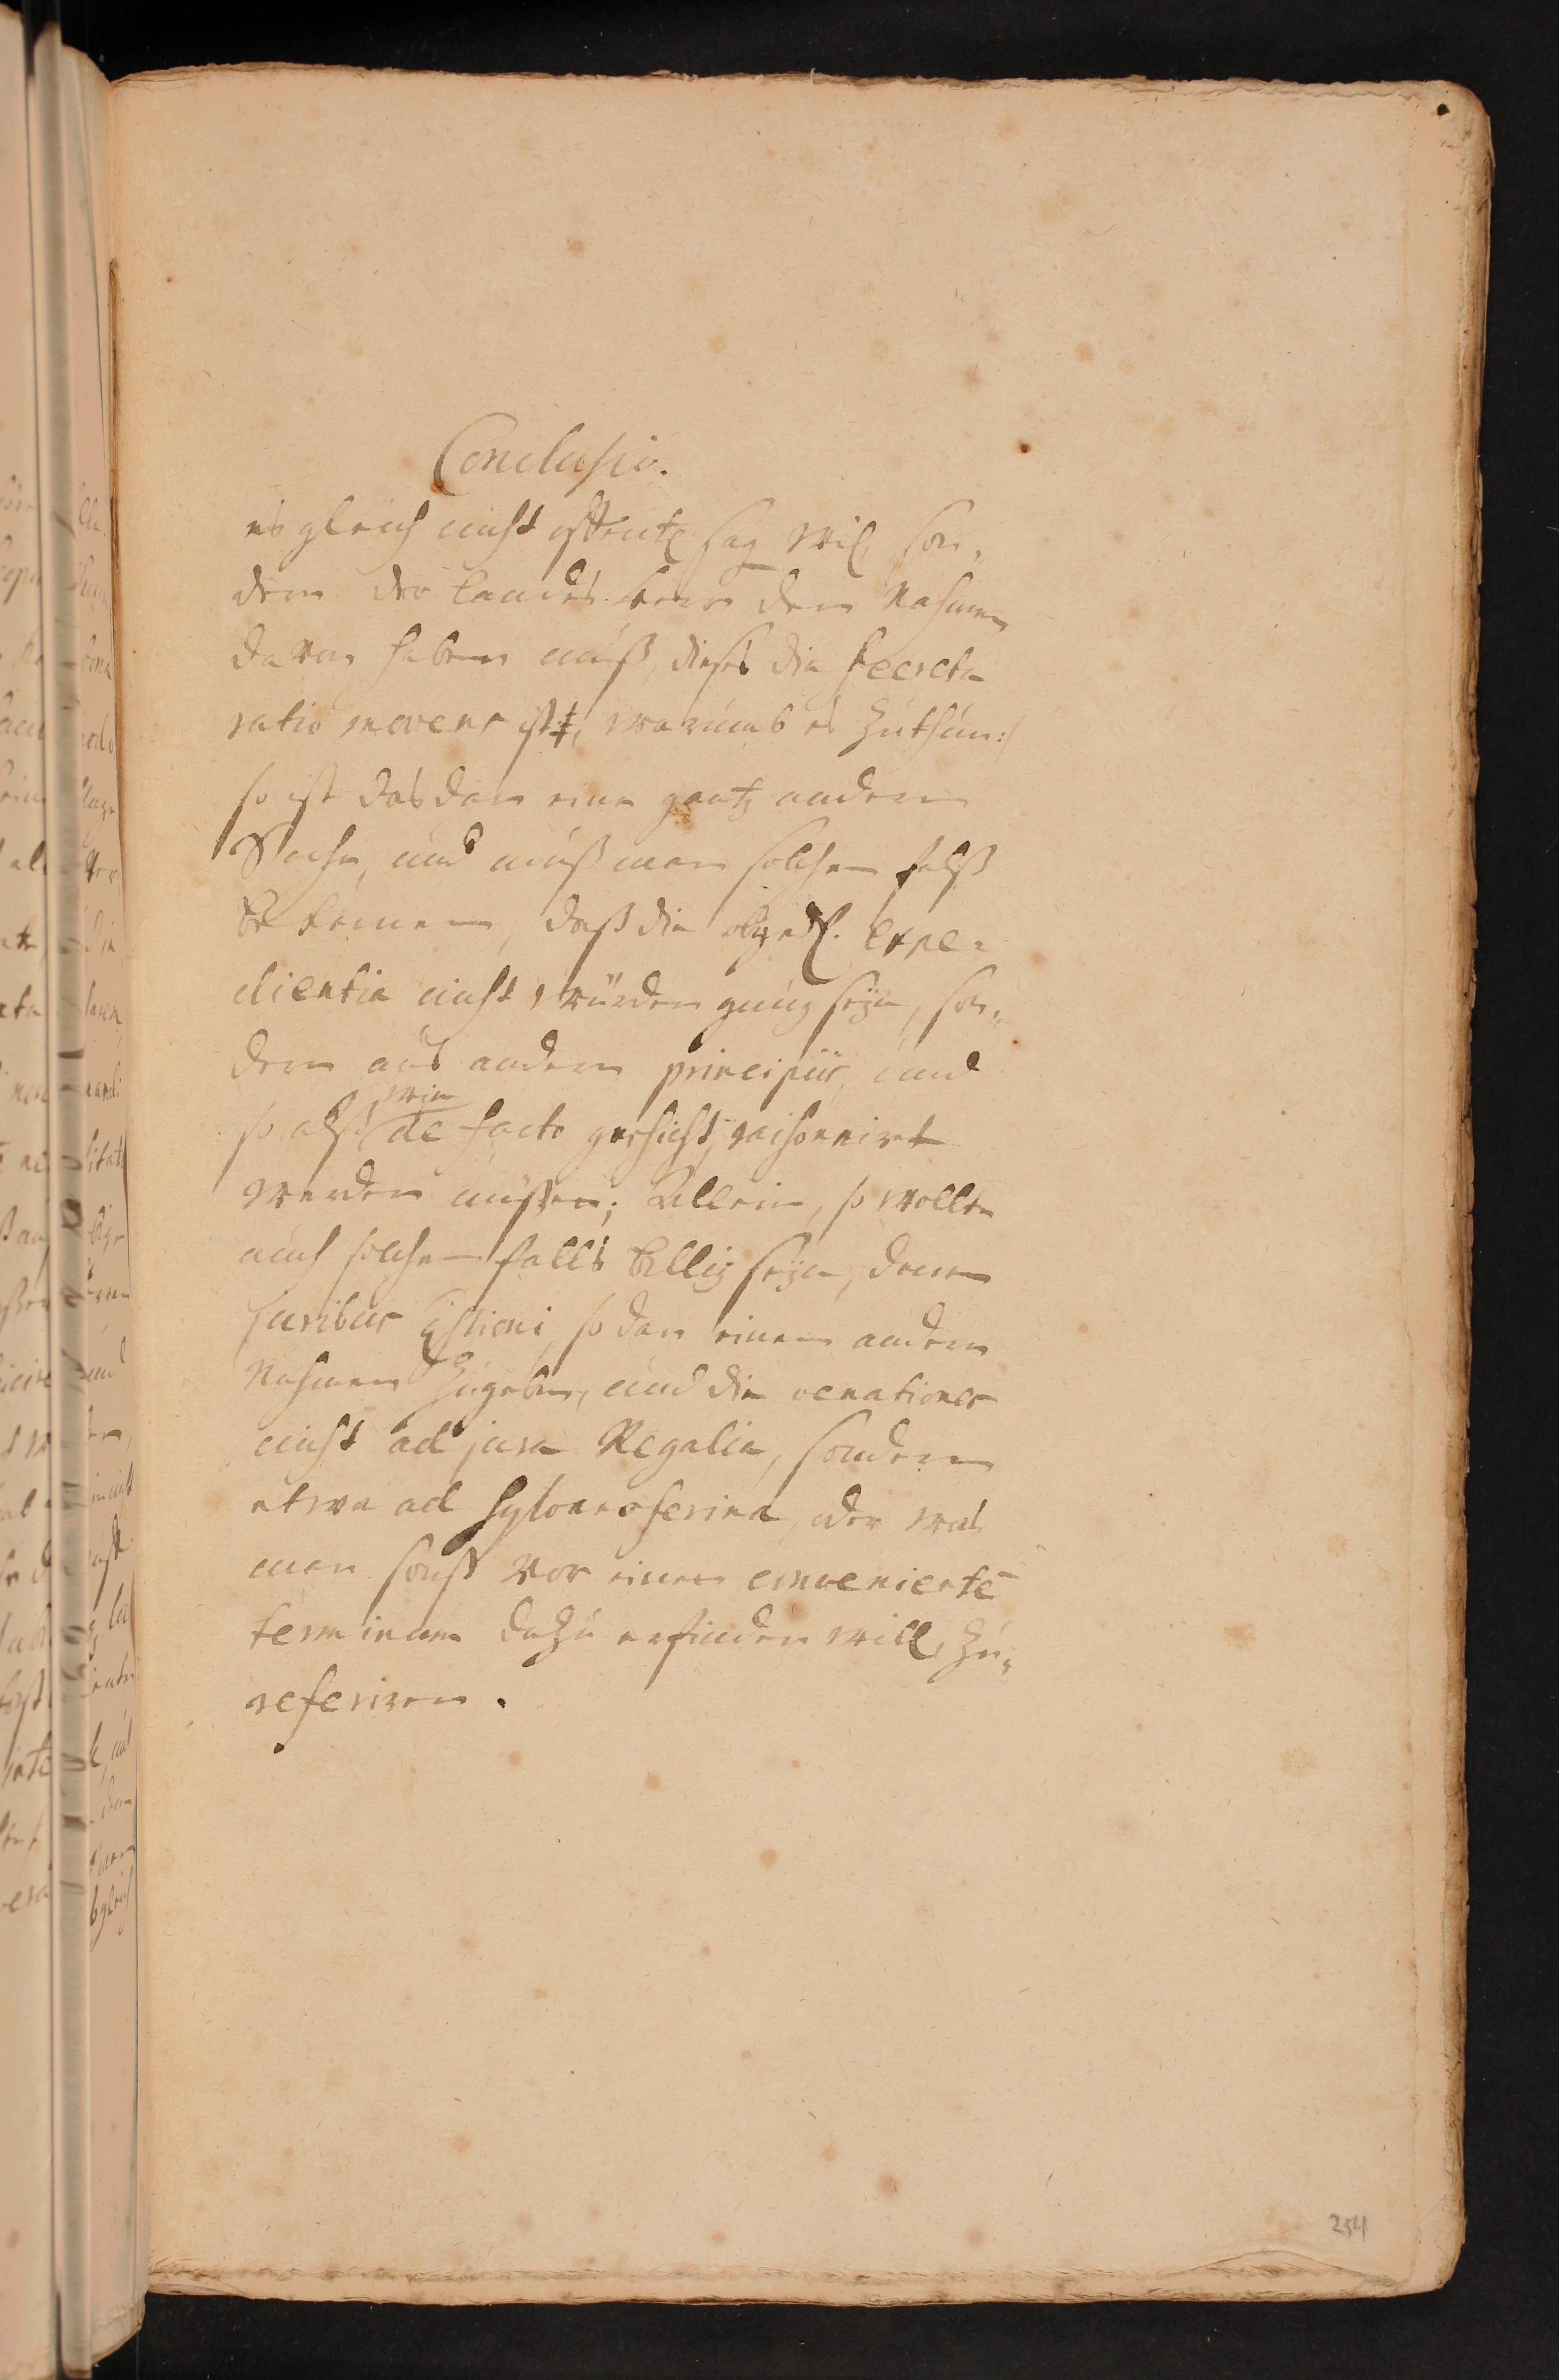 Conclusio.
es gleich nicht offentl. sag wil, son„
dern der Landes herr den Nahmen
davon haben muß, dieses die secreta
ratio movens ist, warumb es zuthun:/
so ist das dan eine gantz andere
Sache, und muß man solchen falß
bekennen, daß die obged. expe„
dientia nicht würden gnug seyn, son„
dern aus andern principiis, und
so alß wie de facto geschicht, raisonnirt
werden müssen; Allein, so wollte
auch solchen falls billig seyn, denen
juribus so dan einen andern
Nahmen zugeben, und die venationes
nicht ad jura Regalia, sondern
etwa ad hylonoferina, oder was
man sonst vor einen convenientē
terminum dazu erfinden will, zu„
referiren.
254